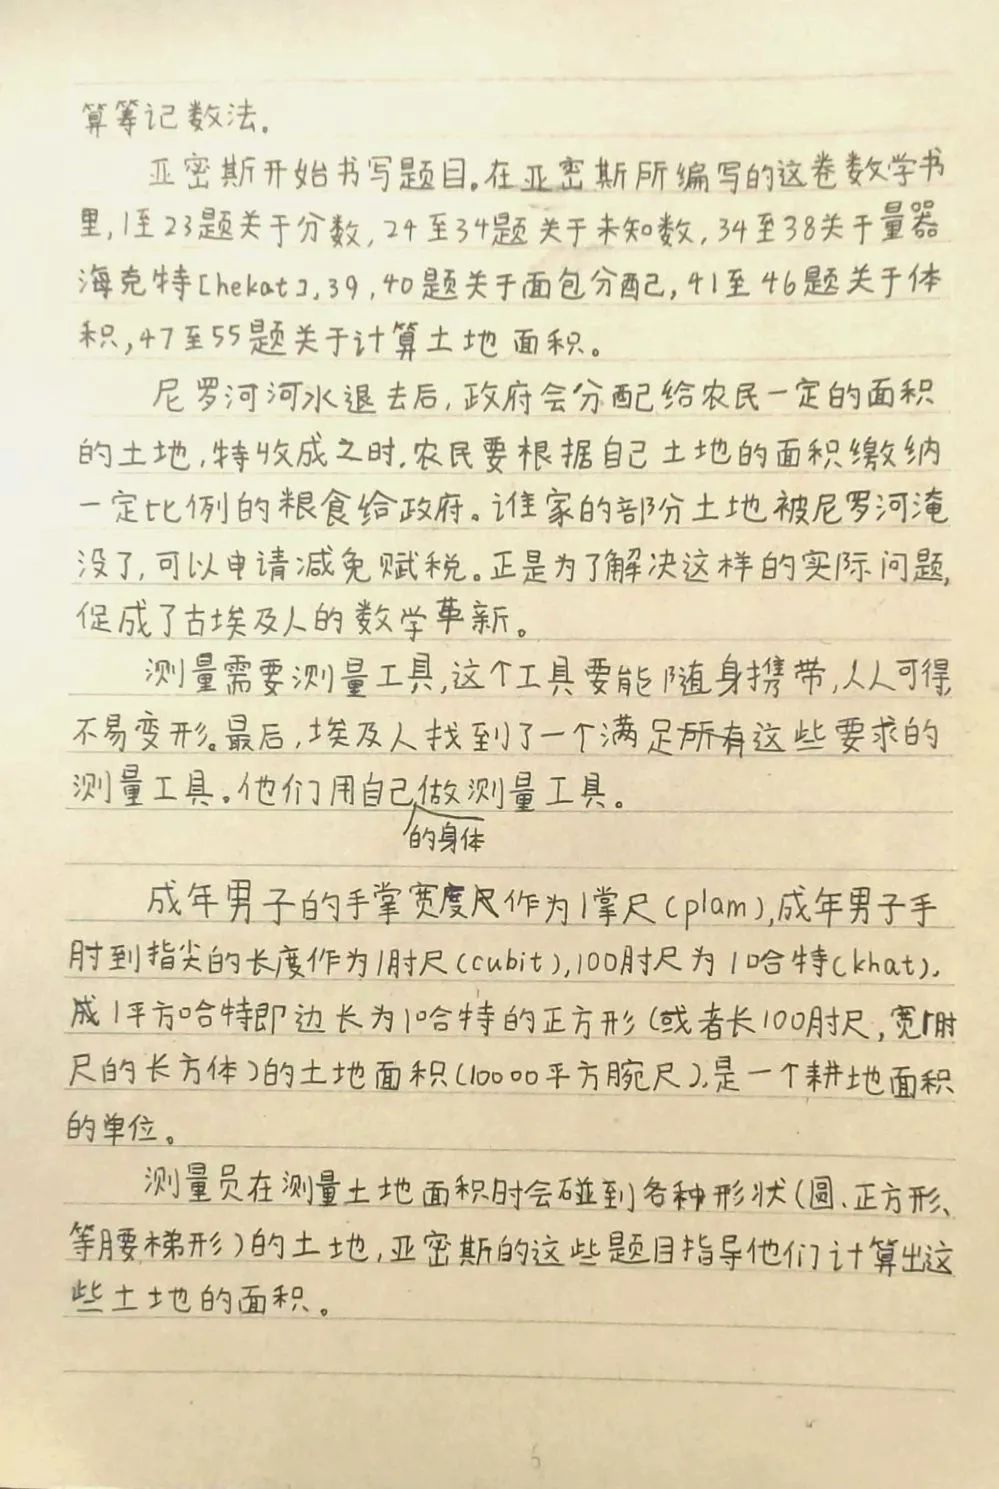 算等记数法.
亚密斯开始书写题目。在亚密斯所编写的这卷数学书
里,1至23题关于分数,24至34题关于未知数,34至38关于量器
海克特[hekat],39,40题关于面包分配,41至46题关于体
积,47至55题关于计算土地面积。
尼罗河河水退去后,政府会分配给农民一定的面积
的土地,特收成之时.农民要根据自己土地的面积缴纳
一定比例的粮食给政府。谁家的部分土地被尼罗河淹
没了,可以申请减免赋税。正是为了解决这样的实际问题,
促成了古埃及人的数学革新。
测量需要测量工具,这个工具要能随身携带,人人可得,
不易变形。最后,埃及人找到了一个满足所有这些要求的
测量工具。他们用自己做测量工具。
的身体
成年男子的手掌宽度尺作为1掌尺(plam),成年男子手
肘到指尖的长度作为1肘尺(cubit),100肘尺为1哈特(khat).
成1平方哈特即边长为1哈特的正方形(或者长100肘尺,宽1肘
尺的长方体)的土地面积(10000平方腕尺).是一个耕地面积
的单位。
测量员在测量土地面积时会碰到各种形状(圆、正方形、
等腰梯形)的土地,亚密斯的这些题目指导他们计算出这
些土地的面积。